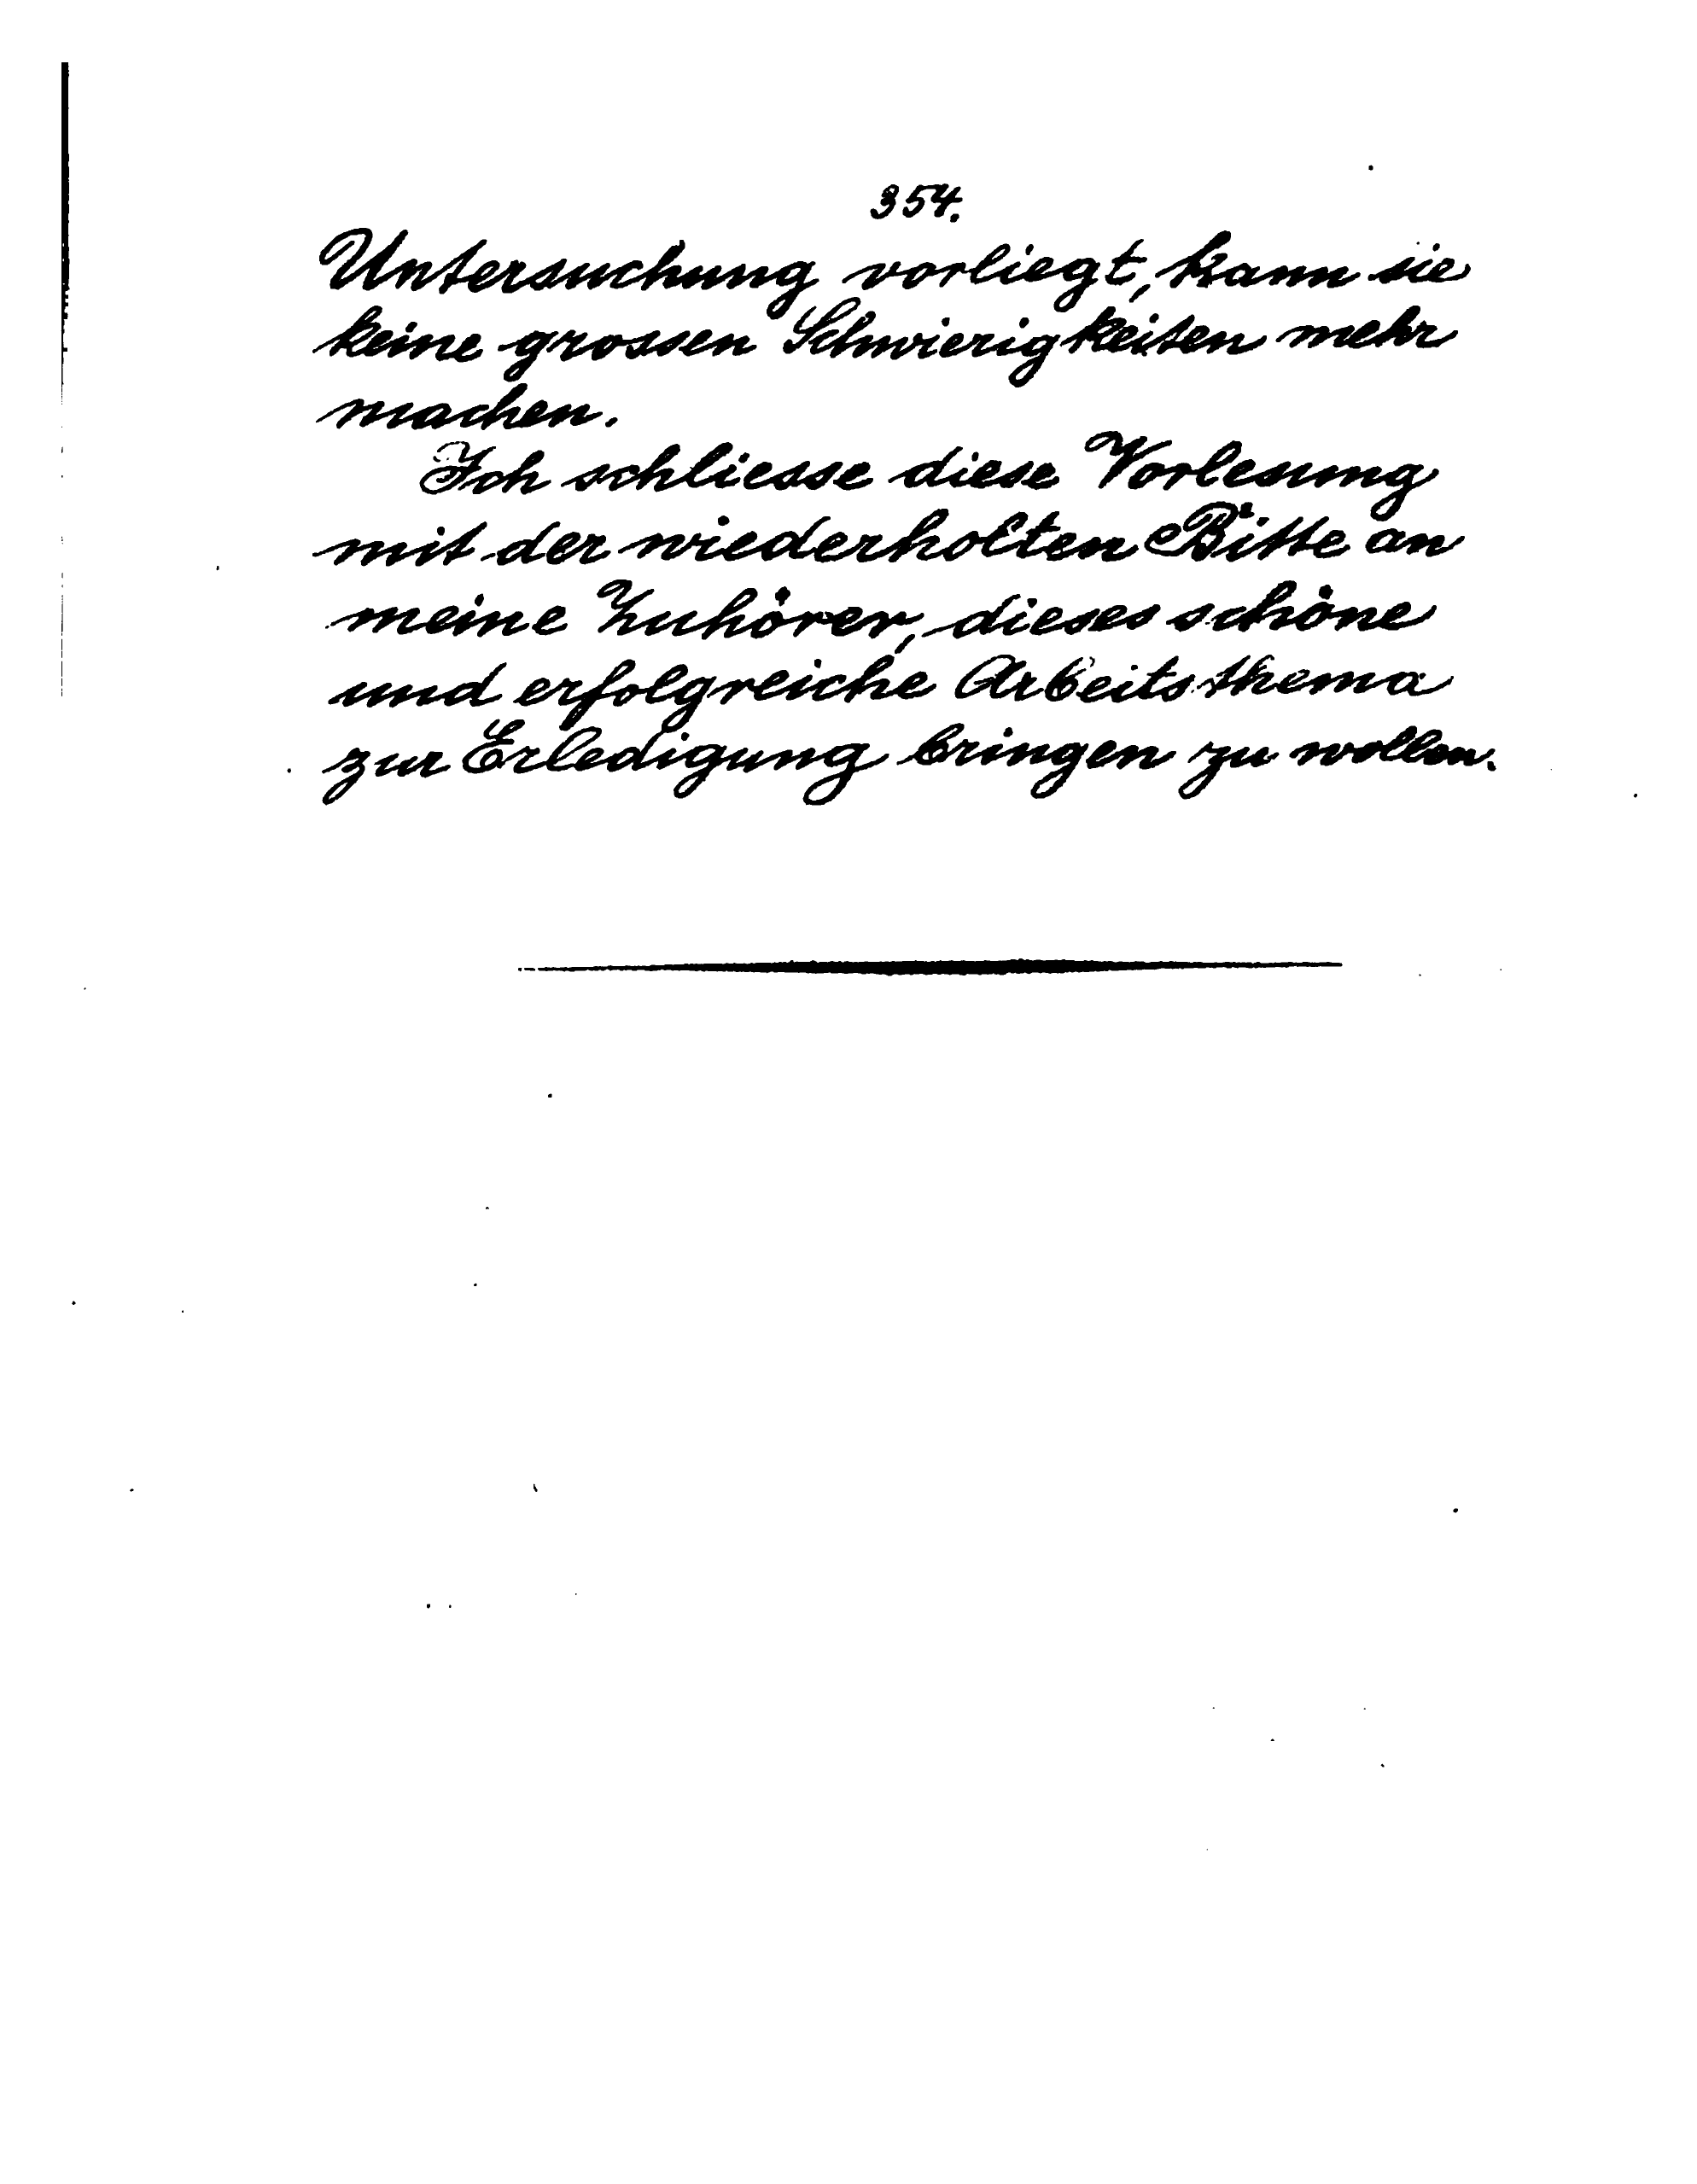 354.
Untersuchung vorliegt, kann sie
keine grossen Schwierigkeiten mehr
machen.
Ich schliesse diese Vorlesung
mit der wiederholten Bitte an
meine Zuhörer, dieses schöne
und erfolgreiche Arbeitsthema
zur Erledigung bringen zu wollen.